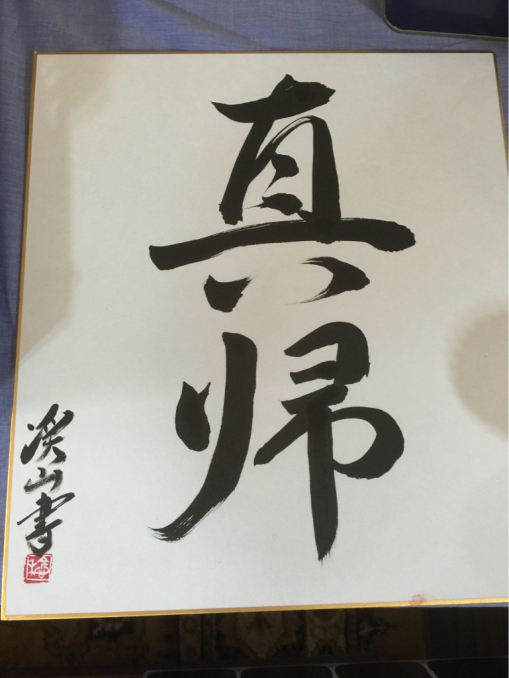 真帰
渓山書